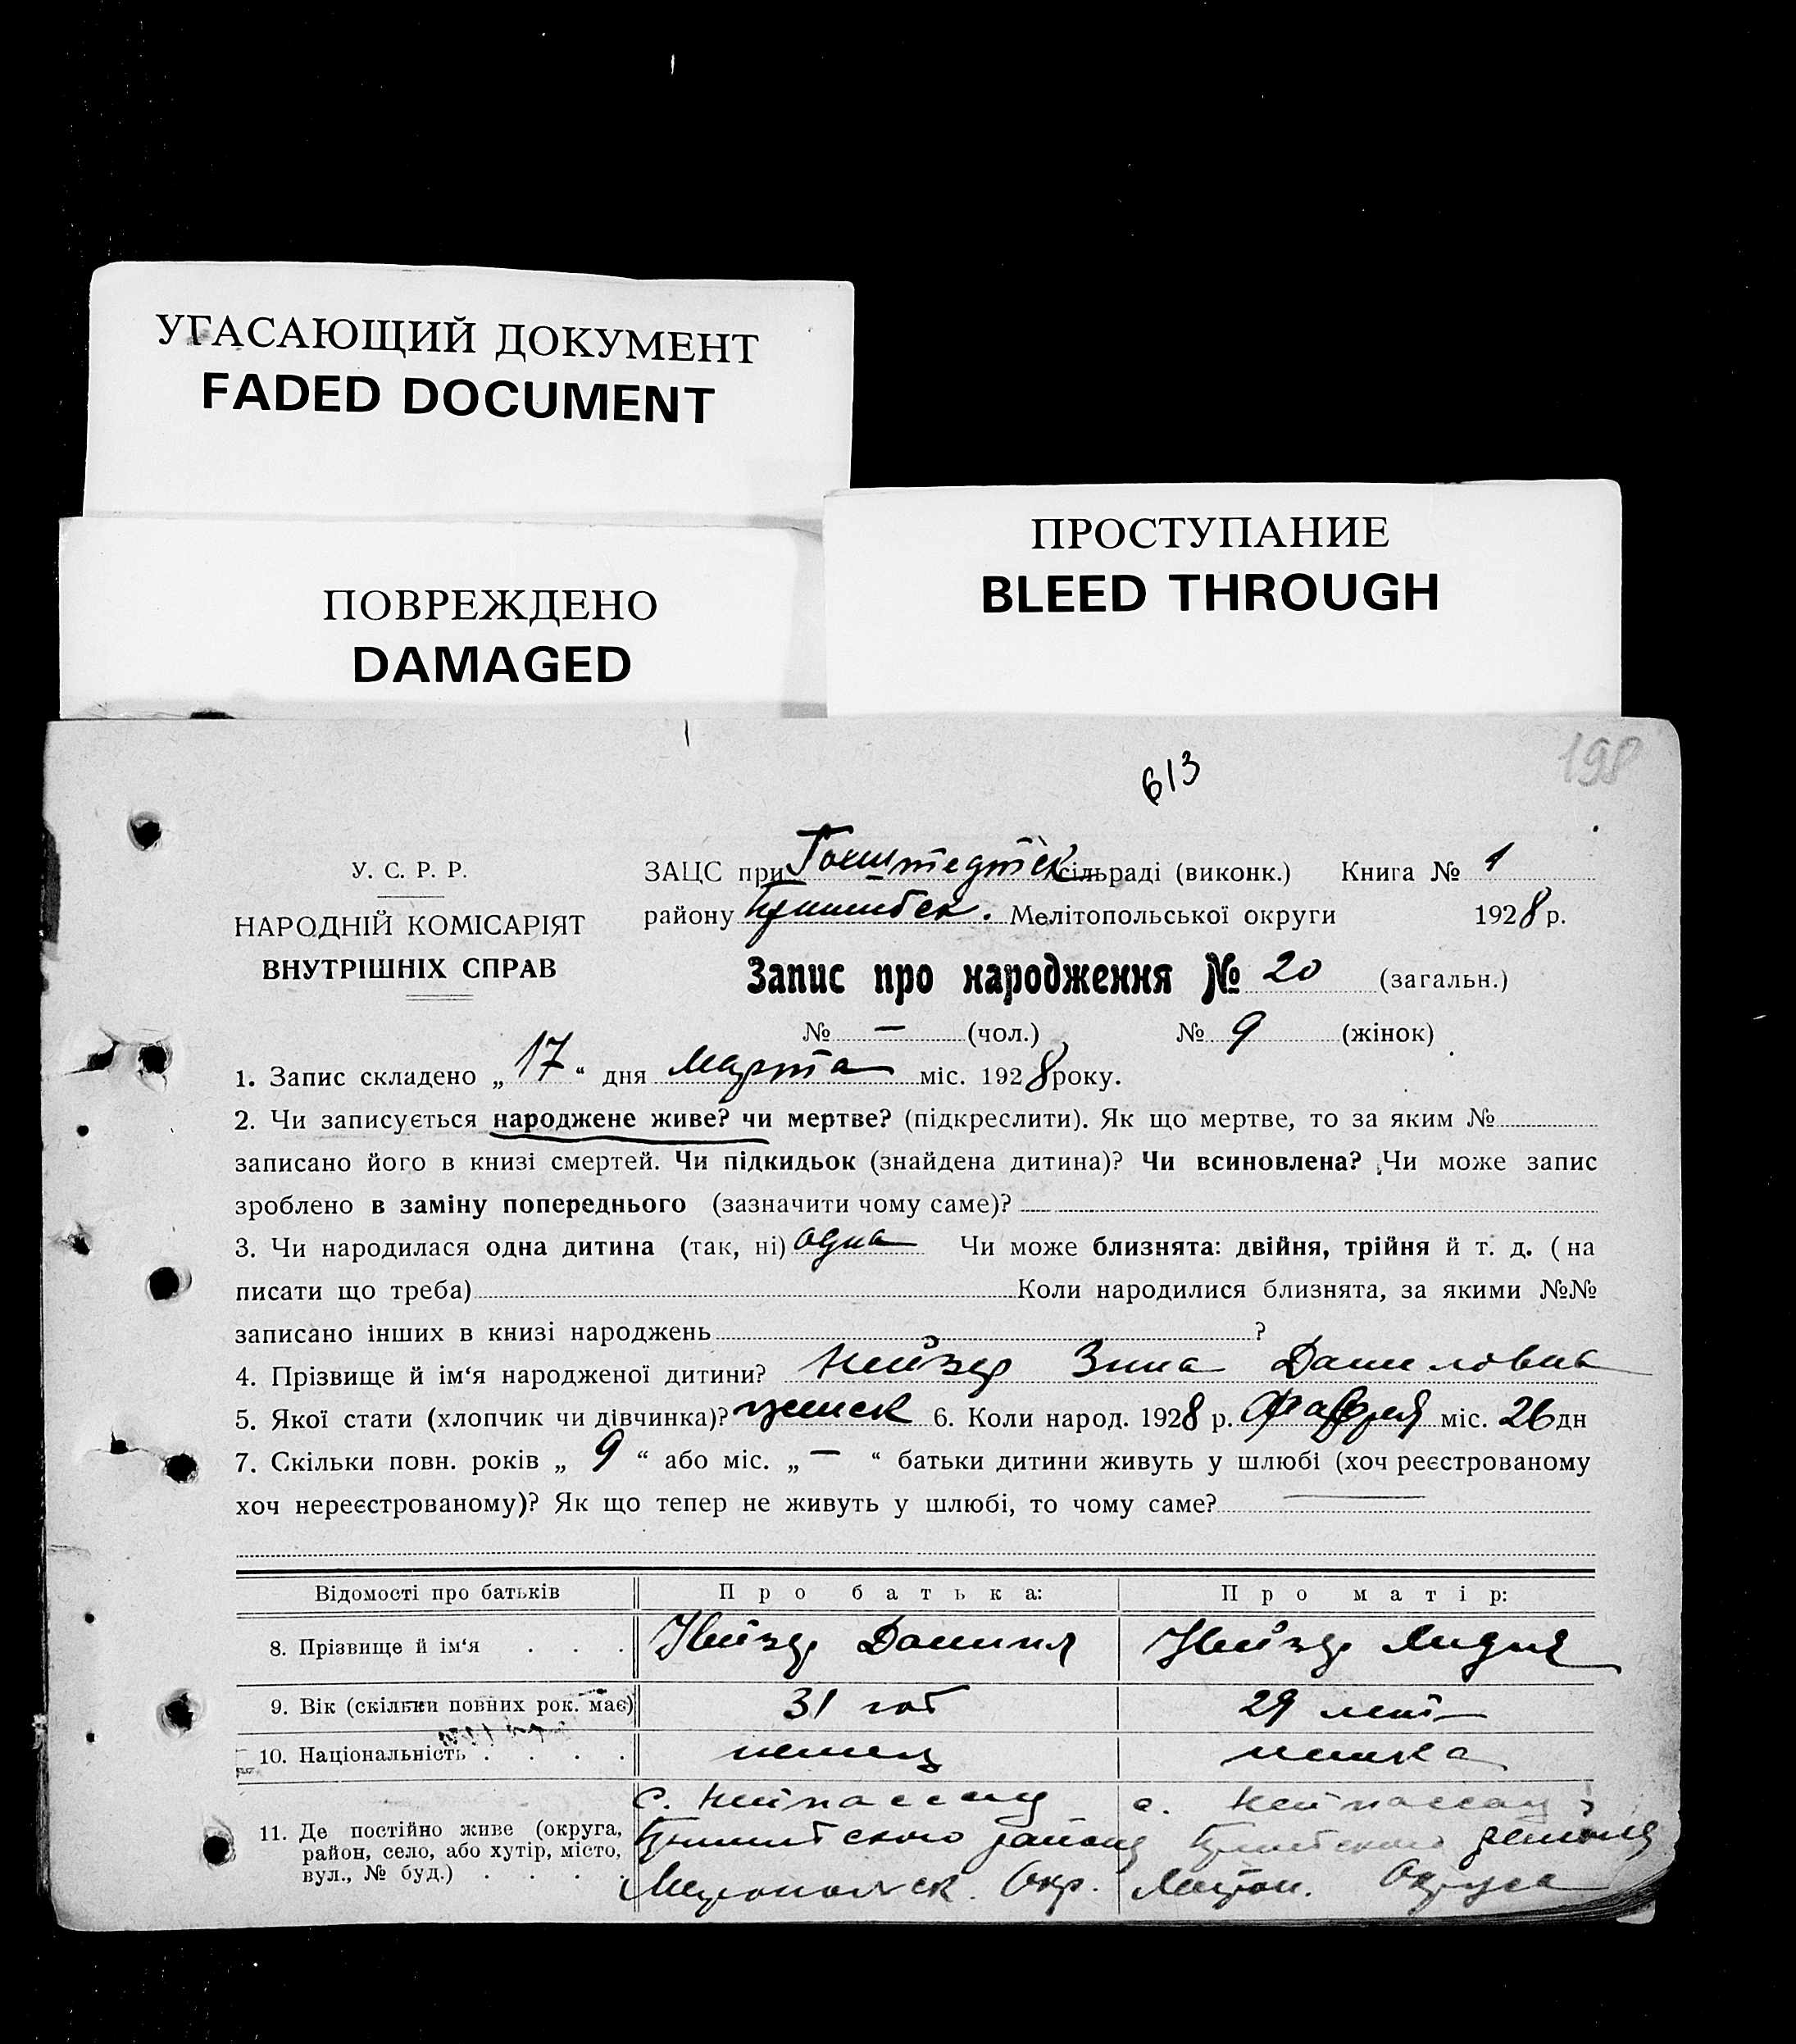 УГАСАЮЩИЙ ДОКУМЕНТ
FADED DOCUMENT
ПОВРЕЖДЕНО
DAMAGED
ПРОСТУПАНИЕ
BLEED THROUGH
198
613
У. С. Р. Р.
НАРОДНІЙ КОМІСАРІЯТ
ВНУТРІШНІХ СПРАВ
ЗАЦС при Гоштедтск сільраді (виконк.) Книга № 1
району Мелітопольської округи 1928 р.
Запис про народження № 20 (загальн.)
№ — (чол.) № 9 (жінок)
1. Запис складено „17“ дня Марта міс. 1928 року.
2. Чи записується народжене живе? чи мертве? (підкреслити). Як що мертве, то за яким №
записано його в книзі смертей. Чи підкидьок (знайдена дитина)? Чи всиновлена? Чи може запис
зроблено в заміну попереднього (зазначити чому саме)?
3. Чи народилася одна дитина (так, ні) одна Чи може близнята: двійня, трійня й т. д. (на
писати що треба) Коли народилися близнята, за якими №№
записано інших в книзі народжень ?
4. Прізвище й ім‘я народженої дитини? Нейзер Зина Даниловна
5. Якої стати (хлопчик чи дівчинка)? женск 6. Коли народ. 1928 р. міс. 26 дн
7. Скільки повн. років „ 9 “ або міс. „ — “ батьки дитини живуть у шлюбі (хоч реєстрованому
хоч нереєстрованому)? Як що тепер не живуть у шлюбі, то чому саме? —
Відомості про батьків Про батька: Про матір:
8. Прізвище й ім‘я . . . Нейзер Даниил Нейзер Лидия
9. Вік (скільки повних рок. має) 31 год 29 лет
10. Національність . . . . немец немка
с. Нейнассау с. Нейнассау
11. Де постійно живе (округа,
район, село, або хутір, місто,
вул., № буд.) . . . .
района района
Окр. Округа